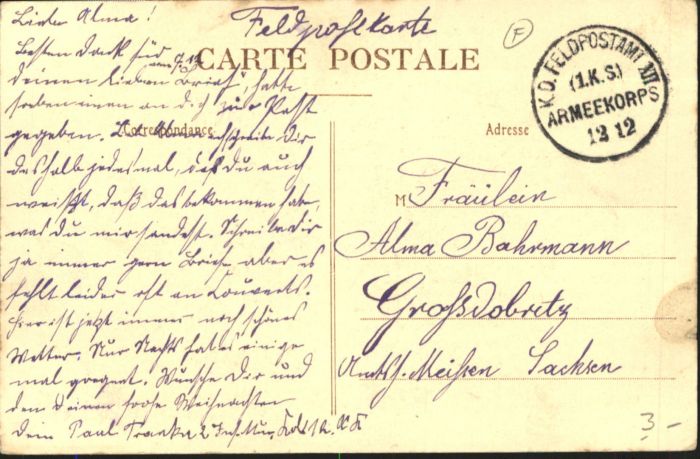 Feldpostkarte
CARTE POSTALE
Correspondance
Adresse
K.D. FELDPOSTAMT XII
(1.K.S.)
ARMEEKORPS
12 12
F
Liebe Alma!
Besten Dank für
deinen lieben Brief, hatte
soeben einen an dich zur Post
gegeben. schreibe Dir
deshalb jedesmal, daß du auch
weißt, daß das bekommen habe,
was du mir sendest. Schreibe dir
ja immer gern Briefe aber es
fehlt leider oft an Couverts.
Hier ist jetzt immer noch schönes
Wetter. Nur Nachts hat es einige
mal geregnet. Wünsche Dir und
den deinen frohe Weihnachten
Dein Paul 2 Inf. Mun. Kol.
M Fräulein
Alma Bahrmann
Grossdobritz
Amtsh. Meißen Sachsen
3 -